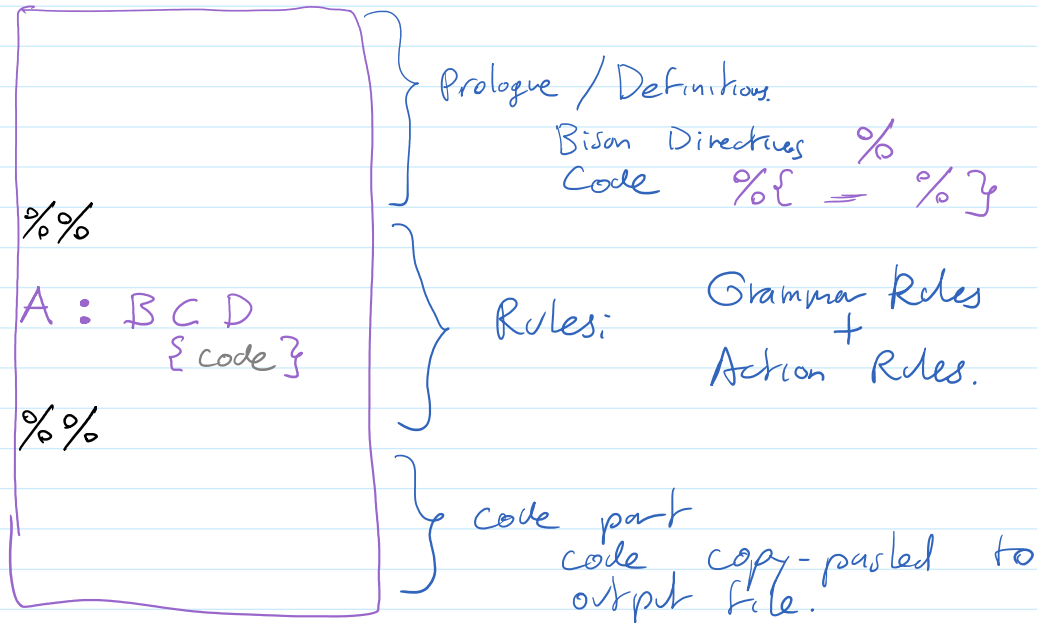 Prologue / Definitions.
Bison Directives %
Code %{ = %}
%%
A : B C D
{ code }
Rules:
Grammar Rules
+
Action Rules.
%%
code part
code copy-pasted to
output file.